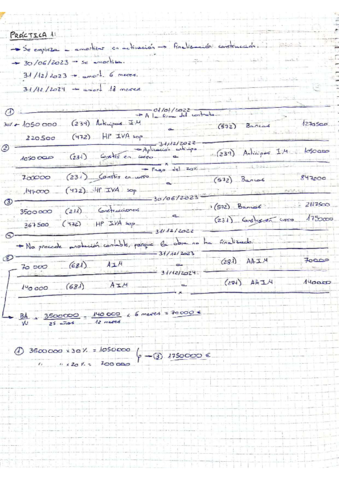 PRÁCTICA 1:
→ Se empieza a amortizar en activación → finalización construcción.
→ 30/06/2023 → se amortiza
31/12/2023 → amort. 6 meses
31/12/2024 → amort. 12 meses
① 01/01/2022
→ A la firma del contrato
1050000 (239) Anticipos I.M a (572) Bancos 1270500
220500 (472) HP IVA sop.
② 31/12/2022
→ Aplicación anticipo
1050000 (231) Constr. en curso a (239) Anticipos I.M 1050000
→ Pago del 20%
700000 (231) Constr. en curso a (572) Bancos 847000
147000 (472) HP IVA sop.
③ 30/06/2023
3500000 (211) Construcciones a (572) Bancos 2117500
367500 (472) HP IVA sop. (231) Construcc. curso 1750000
④ 31/12/2022
→ No procede anotación contable, porque la obra no ha finalizado.
⑤ 31/12/2023
70000 (681) A.I.M a (281) AA.I.M 70000
31/12/2024
140000 (681) A.I.M a (281) AA.I.M 140000
BA = 3500000 = 140000 x 6 meses = 70000 €
VU 25 años 12 meses
① 3500000 x 30% = 1050000
" " x 20% = 700000 → ③ 1750000 €